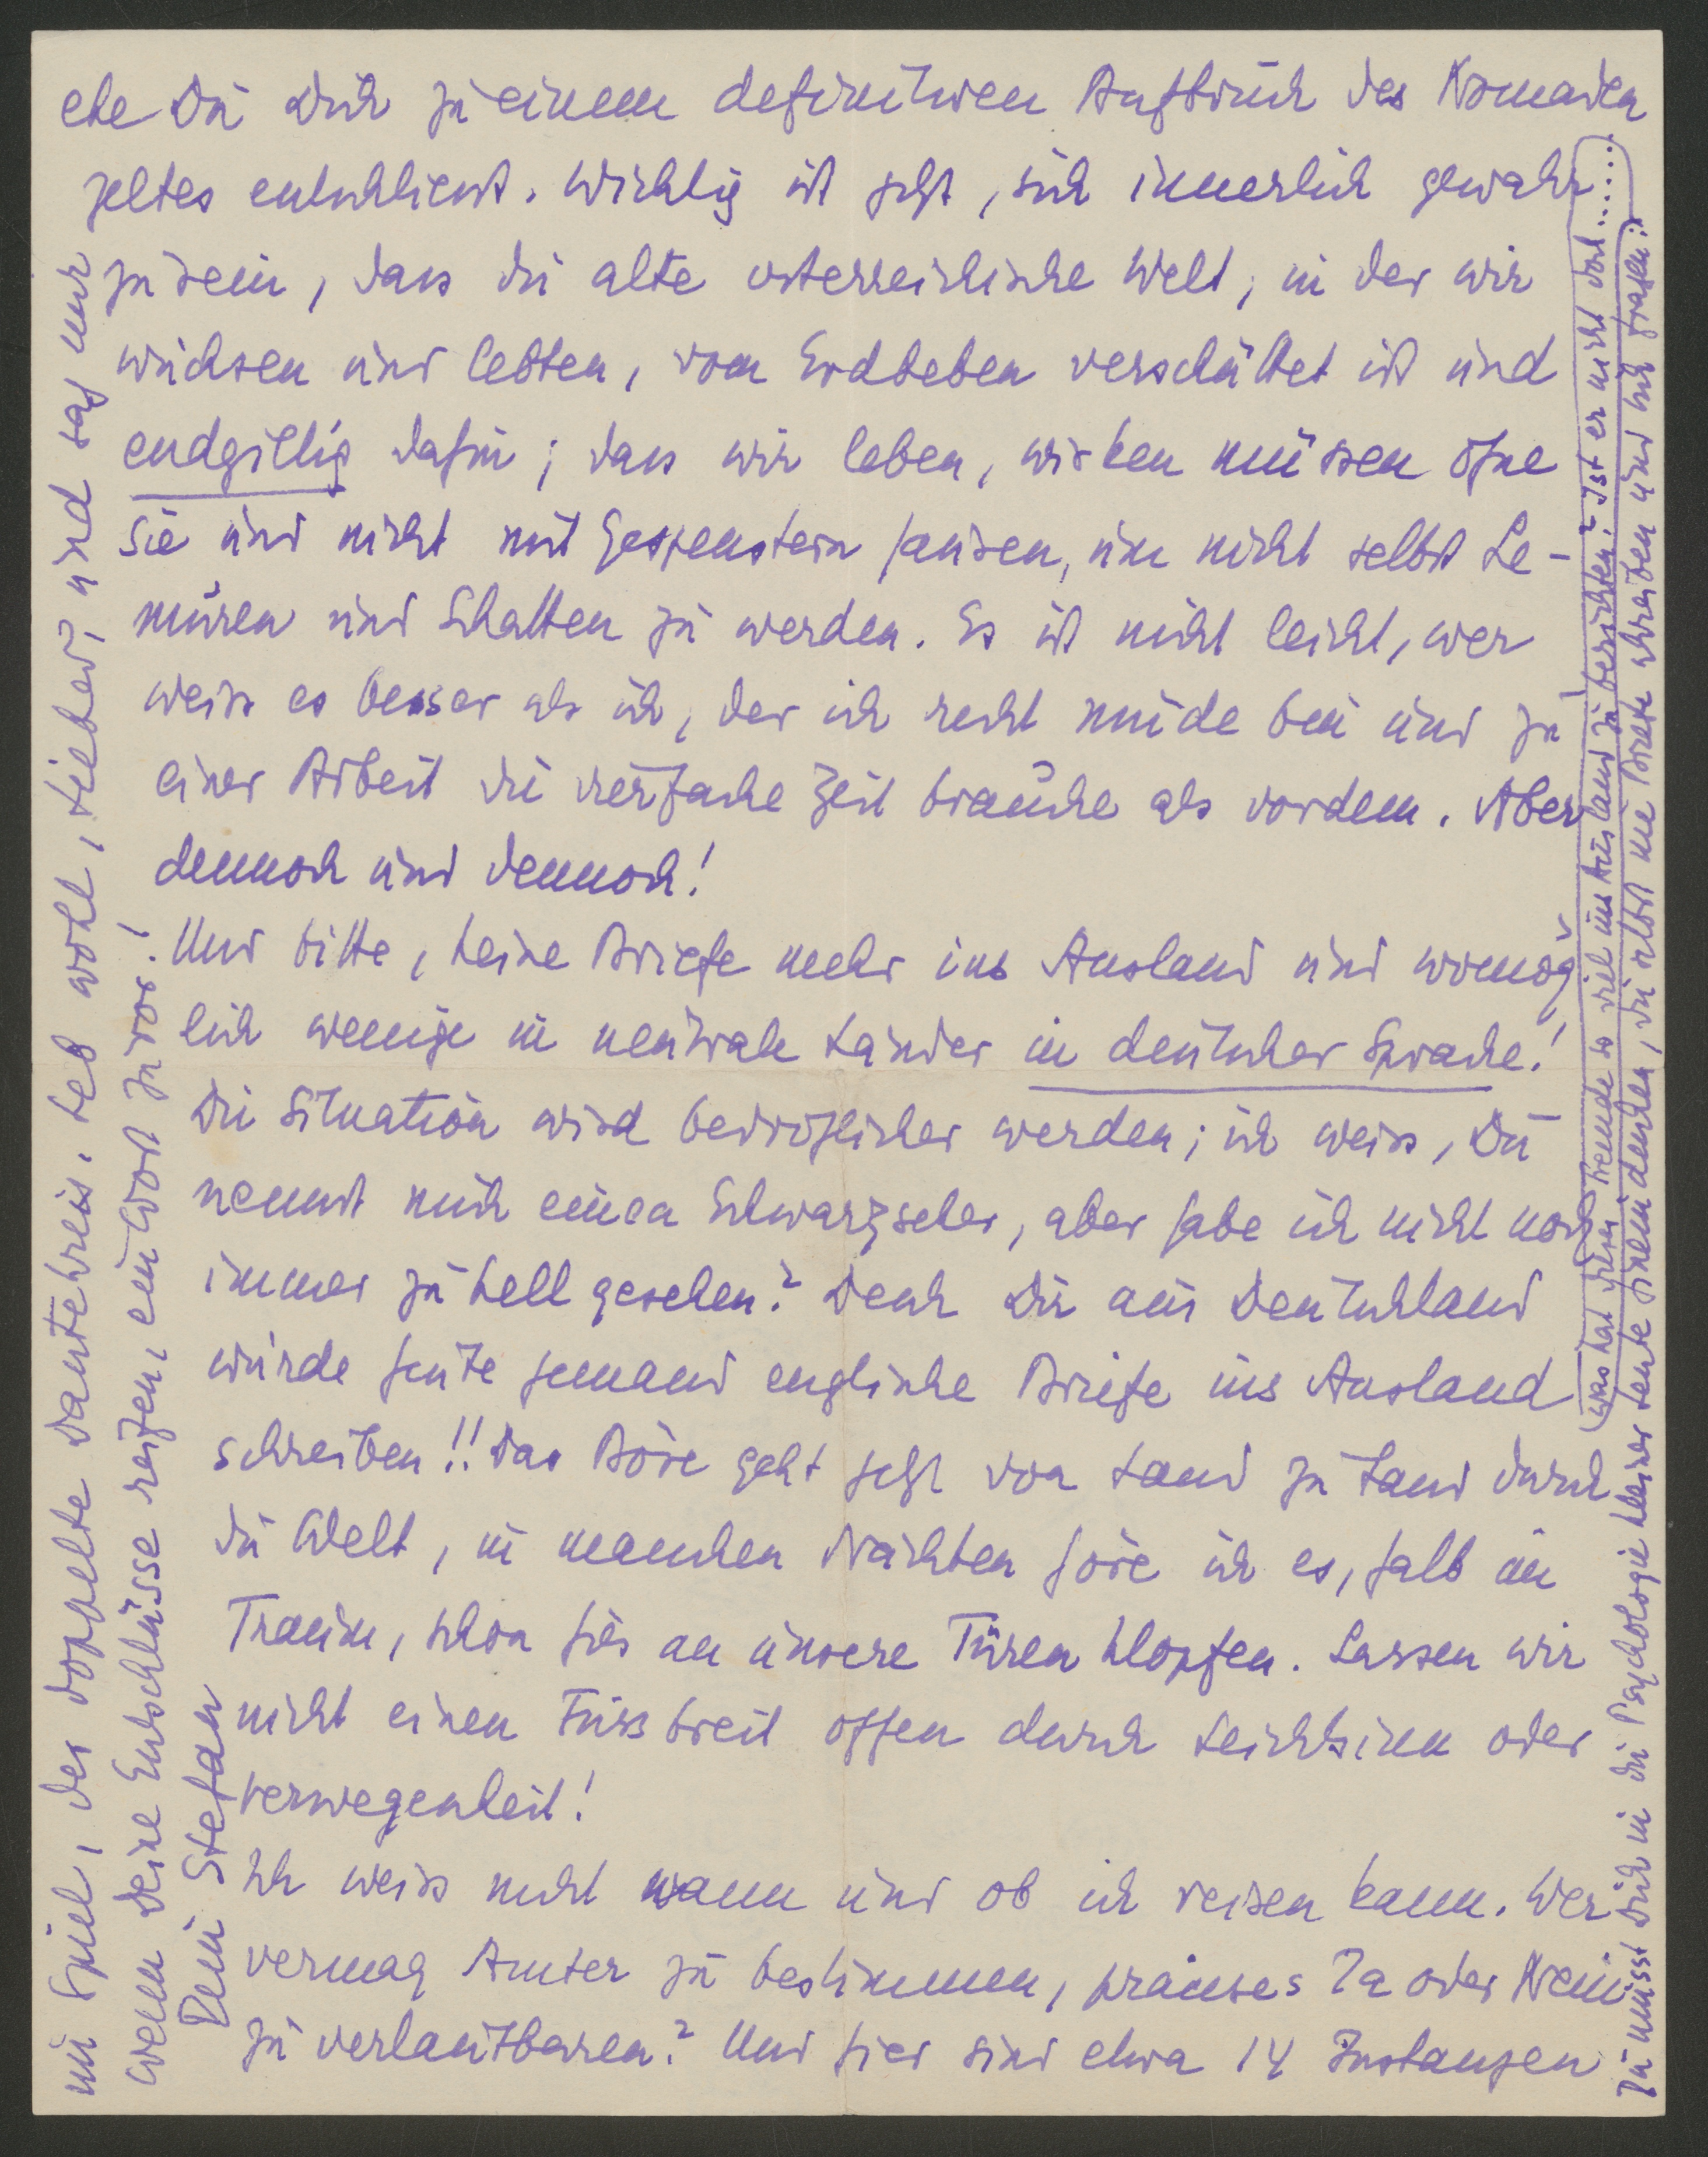 ehe Du Dich zu einem definitiven Aufbruch des Nomaden
zeltes entschliesst. Wichtig ist jetzt, sich innerlich gewahr
zu sein, dass die alte osterreichische Welt, in der wir
wuchsen und lebten, vom Erdbeben verschüttet ist und
endgiltig dahin; dass wir leben, wirken müssen ohne
sie und nicht mit Gespenstern hausen, um nicht selbst Le-
muren und Schatten zu werden. Es ist nicht leicht, wer
weiss es besser als ich, der ich recht müde bin und zu
einer Arbeit die vierfache Zeit brauche als vordem. Aber
dennoch und dennoch!
Und bitte, keine Briefe mehr ins Ausland und womög
lich wenige in neutrale Länder in deutscher Sprache!
Die Situation wird bedrohlicher werden; ich weiss, Du
nennst mich einen Schwarzseher, aber habe ich nicht noch
immer zu hell gesehen? Denk Dir aus Deutschland
würde heute jemand englische Briefe ins Ausland
schreiben!! Das Böse geht jetzt von Land zu Land durch
die Welt, in manchen Nächten höre ich es, halb im
Traum, schon hier an unsere Türen klopfen. Lassen wir
nicht einen Fuss breit offen durch Leichtsinn oder
Verwegenheit!
Ich weiss nicht wann und ob ich reisen kann. Wer
vermag Ämter zu bestimmen, präcises Ja oder Nein
zu verlautbaren? Und hier sind etwa 14 Instanzen
im Spiel, der doppelte Dantekreis. Leb wohl, Lieber, und sag mir
wenn Deine Entschlüsse reifen, ein Wort zuvor!
Dein Stefan
(was hat dieser Fremde so viel ins Ausland zu berichten? Ist er nicht doch.....)
Du musst Dich in die Psychologie kleiner Leute hineindenken, die selbst nie Briefe schreiben und sich fragen: